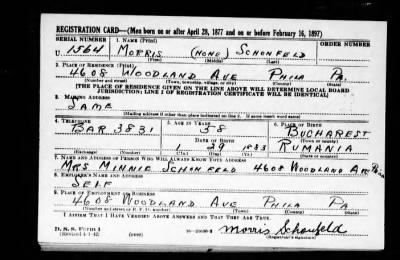 REGISTRATION CARD—(Men born on or after April 28, 1877 and on or before February 16, 1897)
SERIAL NUMBER 1. NAME (Print) ORDER NUMBER
U 1564 MORRIS (NONE) SCHONFELD
(First) (Middle) (Last)
2. PLACE OF RESIDENCE (Print)
4608 WOODLAND AVE PHILA PA.
(Number and street) (Town, township, village, or city) (County) (State)
[THE PLACE OF RESIDENCE GIVEN ON THE LINE ABOVE WILL DETERMINE LOCAL BOARD
JURISDICTION; LINE 2 OF REGISTRATION CERTIFICATE WILL BE IDENTICAL]
3. MAILING ADDRESS
SAME
[Mailing address if other than place indicated on line 2. If same insert word same]
4. TELEPHONE 5. AGE IN YEARS 6. PLACE OF BIRTH
BAR 3831 58 BUCHAREST
DATE OF BIRTH (Town or county)
1 29 1883 RUMANIA
(Exchange) (Number) (Mo.) (Day) (Yr.) (State or country)
7. NAME AND ADDRESS OF PERSON WHO WILL ALWAYS KNOW YOUR ADDRESS
MRS MINNIE SCHONFELD 4608 WOODLAND AVE Phila
8. EMPLOYER'S NAME AND ADDRESS
SELF
9. PLACE OF EMPLOYMENT OR BUSINESS
4608 WOODLAND AVE PHILA PA
(Number and street or R. F. D. number) (Town) (County) (State)
I AFFIRM THAT I HAVE VERIFIED ABOVE ANSWERS AND THAT THEY ARE TRUE.
D. S. S. Form 1
(Revised 4-1-42) (over) Morris Schonfeld
(Registrant's signature)